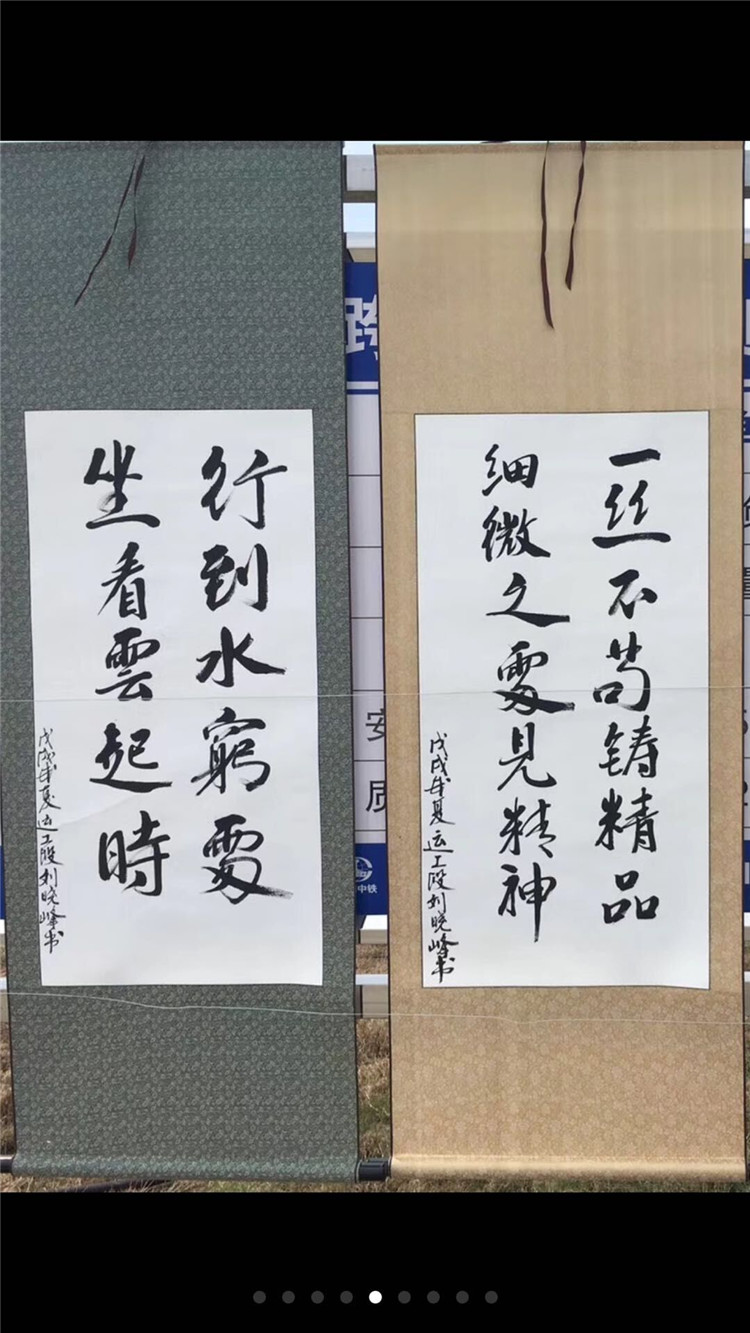 一丝不苟铸精品
细微之處見精神
戊戌年夏运工段刘晓峰书
行到水窮處
坐看雲起時
戊戌年夏运工段刘晓峰书
跨
安
质
中铁